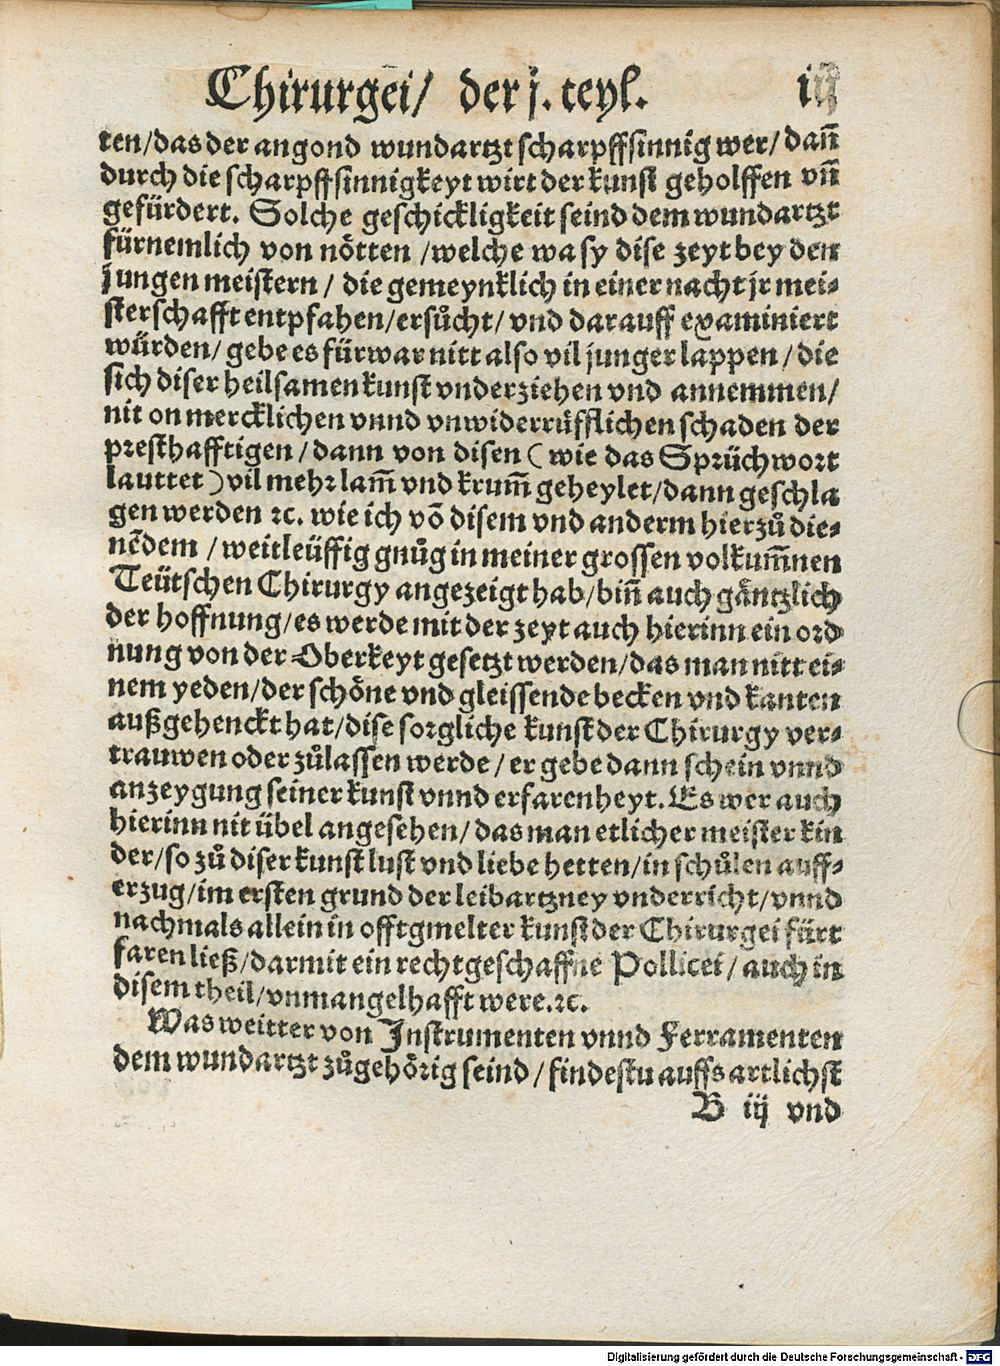 Chirurgei/ der j. teyl. iij
ten/das der angond wundartzt scharpffsinnig wer/ dañ
durch die scharpffsinnigkeyt wirt der kunst geholffen vñ
gefürdert. Solche geschickligkeit seind dem wundartzt
fürnemlich von nötten /welche wa sy dise zeyt bey den
jungen meistern/ die gemeynklich in einer nacht jr mei-
sterschafft entpfahen/ersůcht/ vnd darauff examiniert
würden/ gebe es fürwar nitt also vil junger lappen/die
sich diser heilsamen kunst vnderziehen vnd annemmen/
nit on mercklichen vnnd vnwiderrüfflichen schaden der
presthafftigen/dann von disen ( wie das Sprüchwort
lauttet ) vil mehr lam̃ vnd krum̃ geheylet/dann geschla
gen werden ꝛc. wie ich võ disem vnd anderm hierzů die-
nẽdem /weitleüffig gnůg in meiner grossen volkum̃nen
Teütschen Chirurgy angezeigt hab/biñ auch gäntzlich
der hoffnung/es werde mit der zeyt auch hierinn ein ord
nung von der Oberkeyt gesetzt werden/das man nitt ei-
nem yeden/der schöne vnd gleissende becken vnd kanten
außgehenckt hat/dise sorgliche kunst der Chirurgy ver-
trauwen oder zůlassen werde/er gebe dann schein vnnd
anzeygung seiner kunst vnnd erfarenheyt. Es wer auch
hierinn nit übel angesehen/das man etlicher meister kin
der/so zů diser kunst lust vnd liebe hetten/in schůlen auff-
erzug/im ersten grund der leibartzney vnderricht/vnnd
nachmals allein in offtgmelter kunst der Chirurgei fürt
faren ließ/darmit ein rechtgeschaffne Pollicei/auch in
disem theil/vnmangelhafft were.ꝛc.
Was weitter von Instrumenten vnnd Ferramenten
dem wundartzt zůgehörig seind/findestu auffs artlichst
B iij vnd
Digitalisierung gefördert durch die Deutsche Forschungsgemeinschaft - DFG